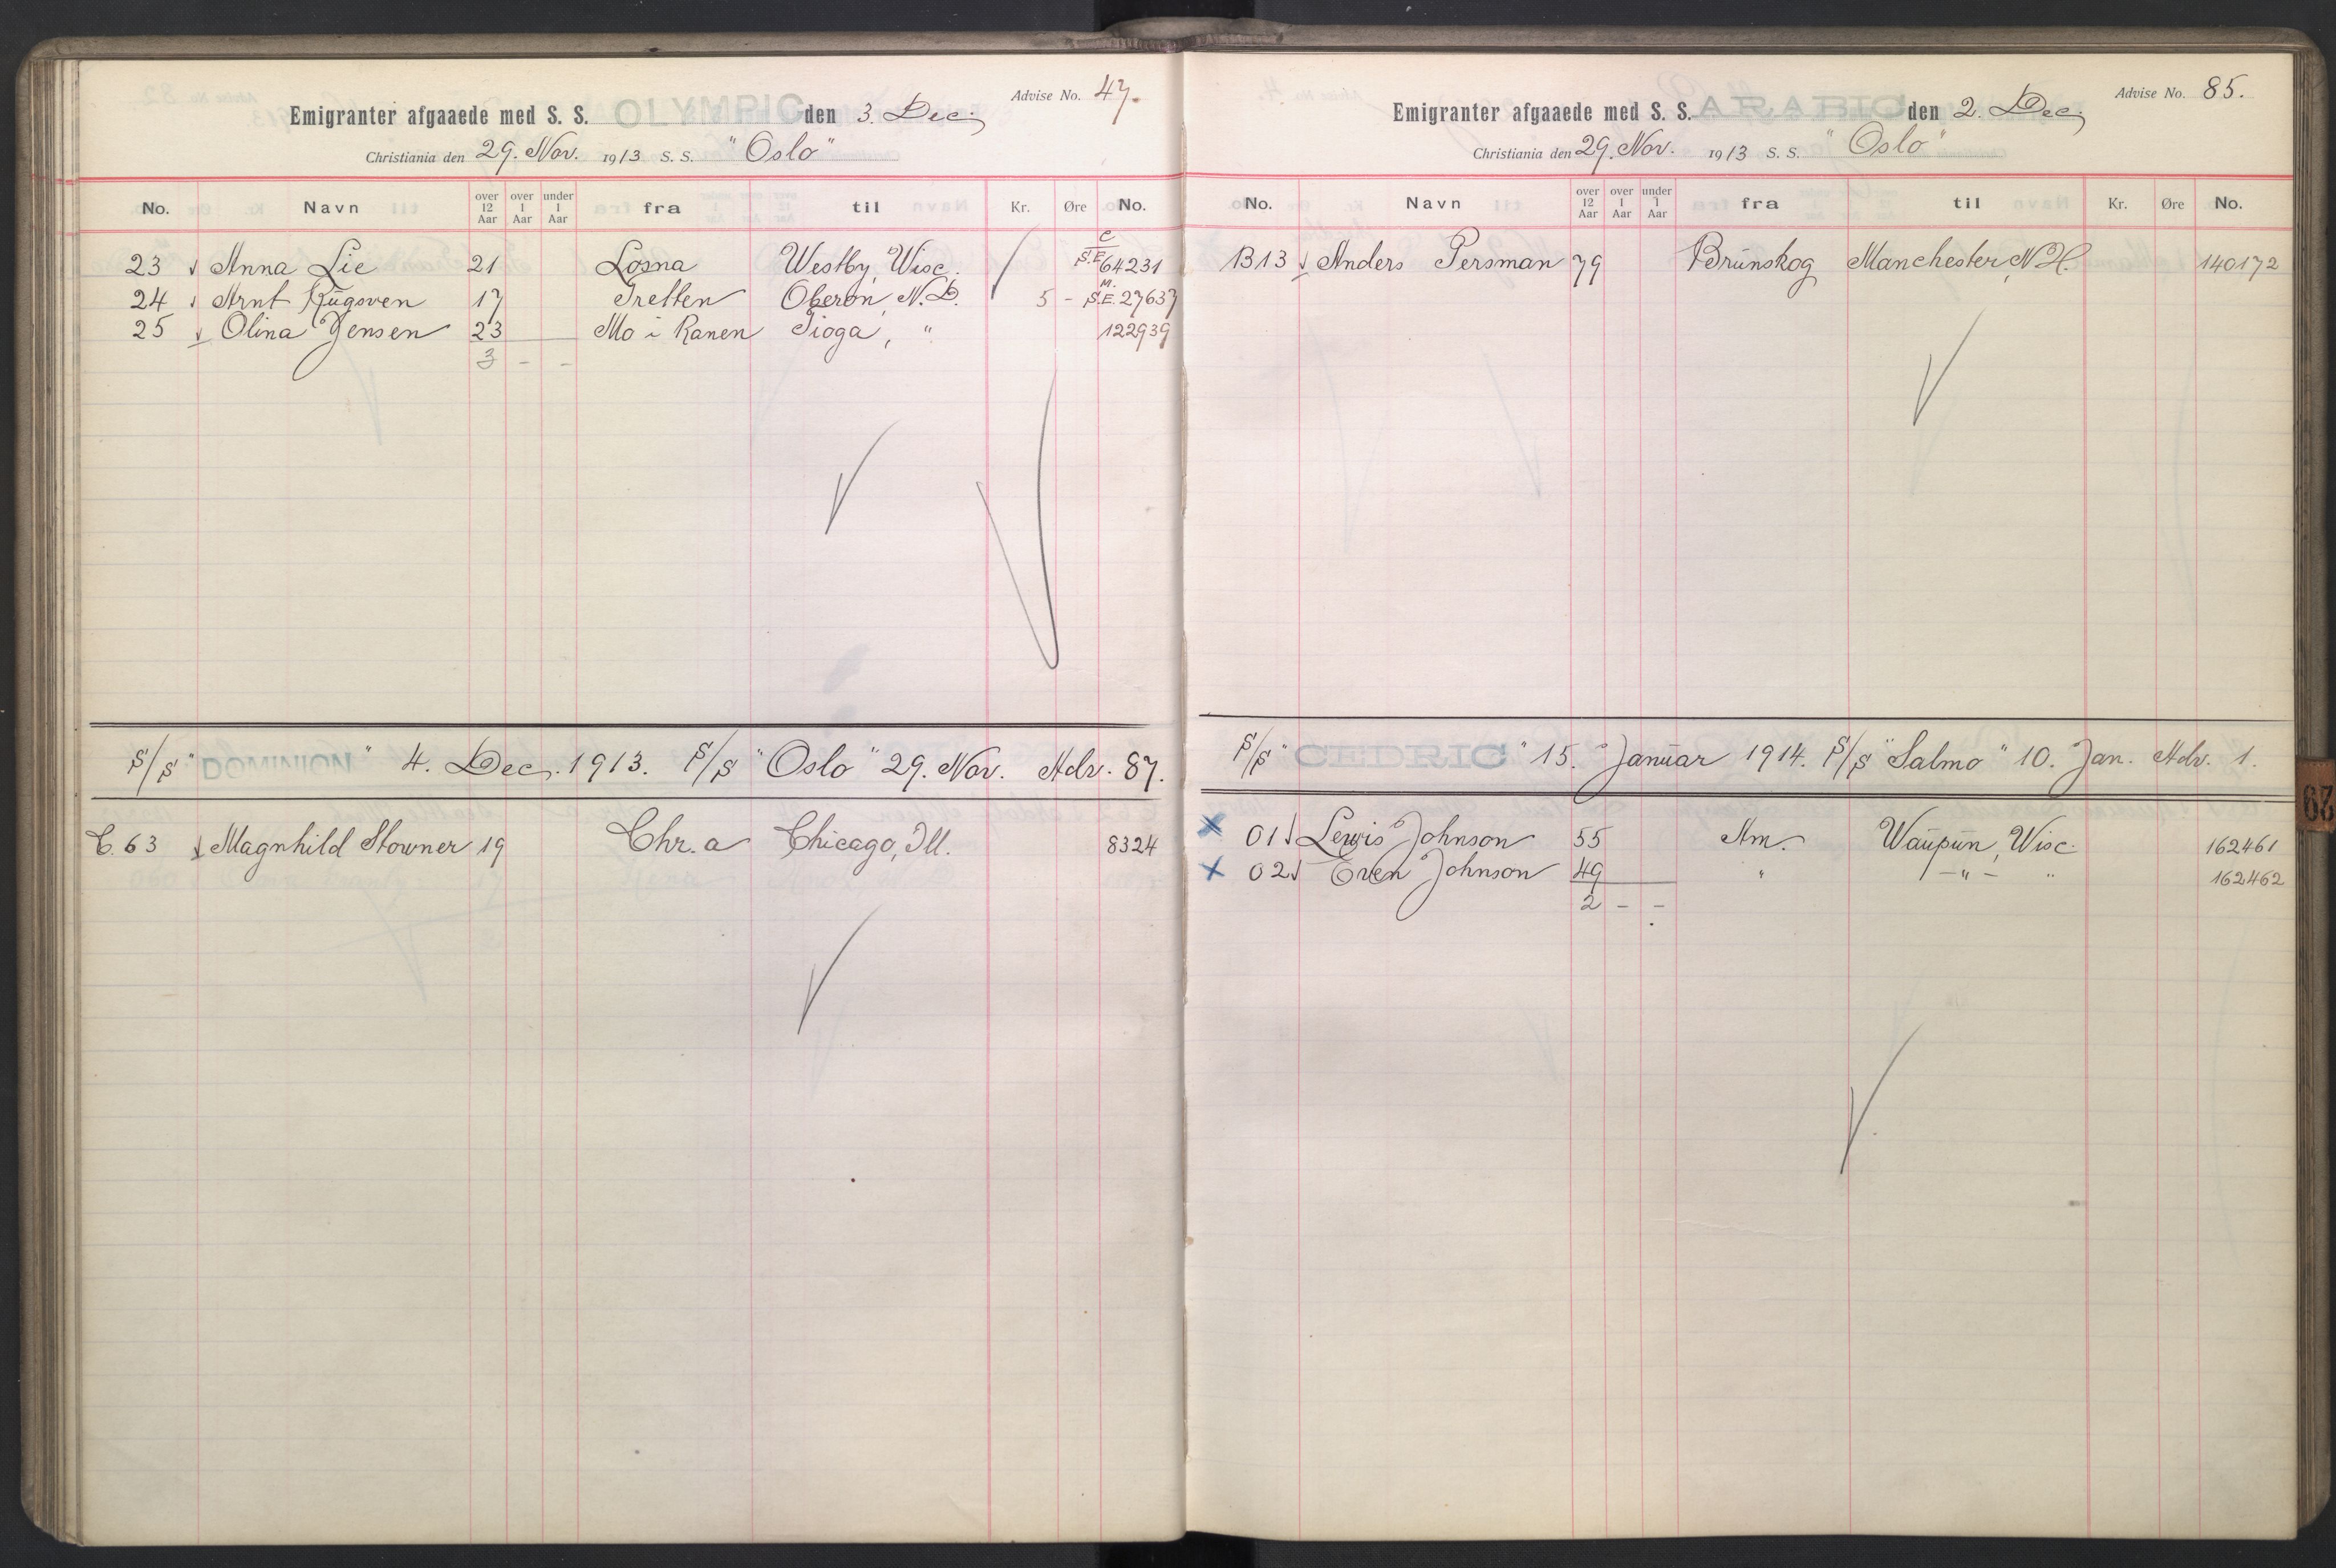 Advise No. 47.
Emigranter afgaaede med S. S. OLYMPIC den 3. Dec.
Christiania den 29. Nov. 1913 S. S. "Oslo"
No. Navn over 12 Aar over 1 Aar under 1 Aar fra til Kr. Øre No.
23 Anna Lie 21 Losna Westby, Wisc. C S.E. 64231
24 Arnt Rugsven 17 Tretten Oberon, N.D. 5 - M. S.E. 27637
25 Olina Jensen 23 Mo i Ranen Tioga, " 122939
3 - -
S/S "DOMINION" 4. Dec. 1913. S/S "Oslo" 29. Nov. Adv. 87.
C. 63 Magnhild Stowner 19 Chr.a Chicago, Ill. 8324
Advise No. 85.
Emigranter afgaaede med S. S. ARABIC den 2. Dec.
Christiania den 29. Nov. 1913 S. S. "Oslo"
No. Navn over 12 Aar over 1 Aar under 1 Aar fra til Kr. Øre No.
B13 Anders Persman 79 Brunskog Manchester, N.H. 140172
S/S "CEDRIC" 15. Januar 1914. S/S "Salmo" 10. Jan. Adv. 1.
01 Lewis Johnson 55 Am. Waupun, Wisc. 162461
02 Even Johnson 49 " - " - " 162462
2 - -